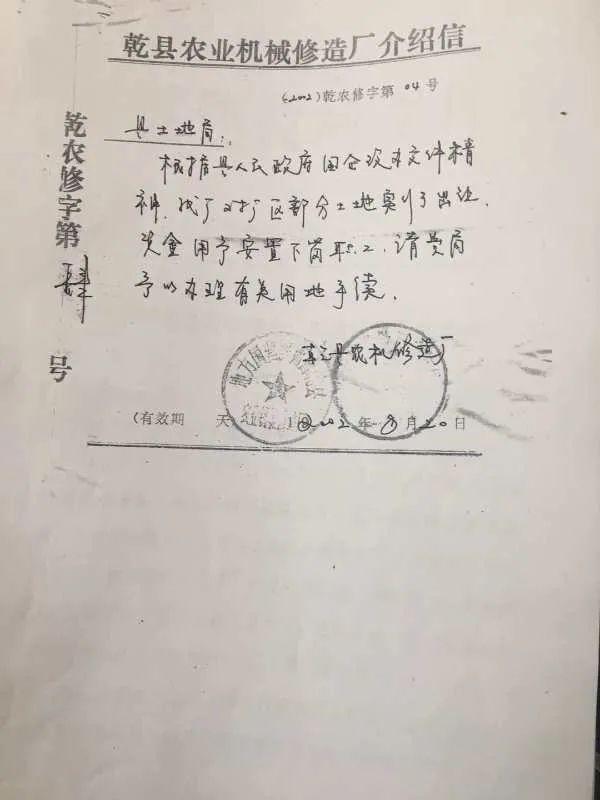 乾县农业机械修造厂介绍信
(2002)乾农修字第04号
乾农修字第肆号
县土地局:
根据县人民政府国企改革文件精
神,我厂对厂区部分土地实行了出让,
资金用于安置下岗职工,请贵局
予以办理有关用地手续。
县农机修造厂
(有效期 天
2002年8月20日